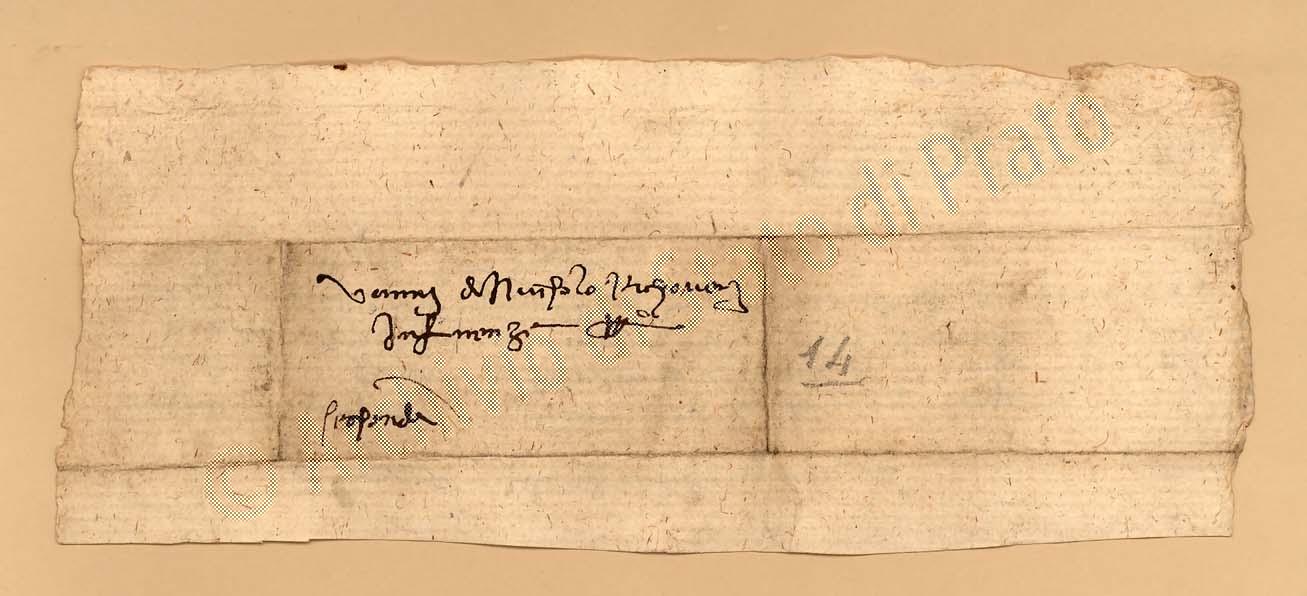 Vanni di Nicholo Richoveri
In Firenze
risponda
14
© Archivio di Stato di Prato